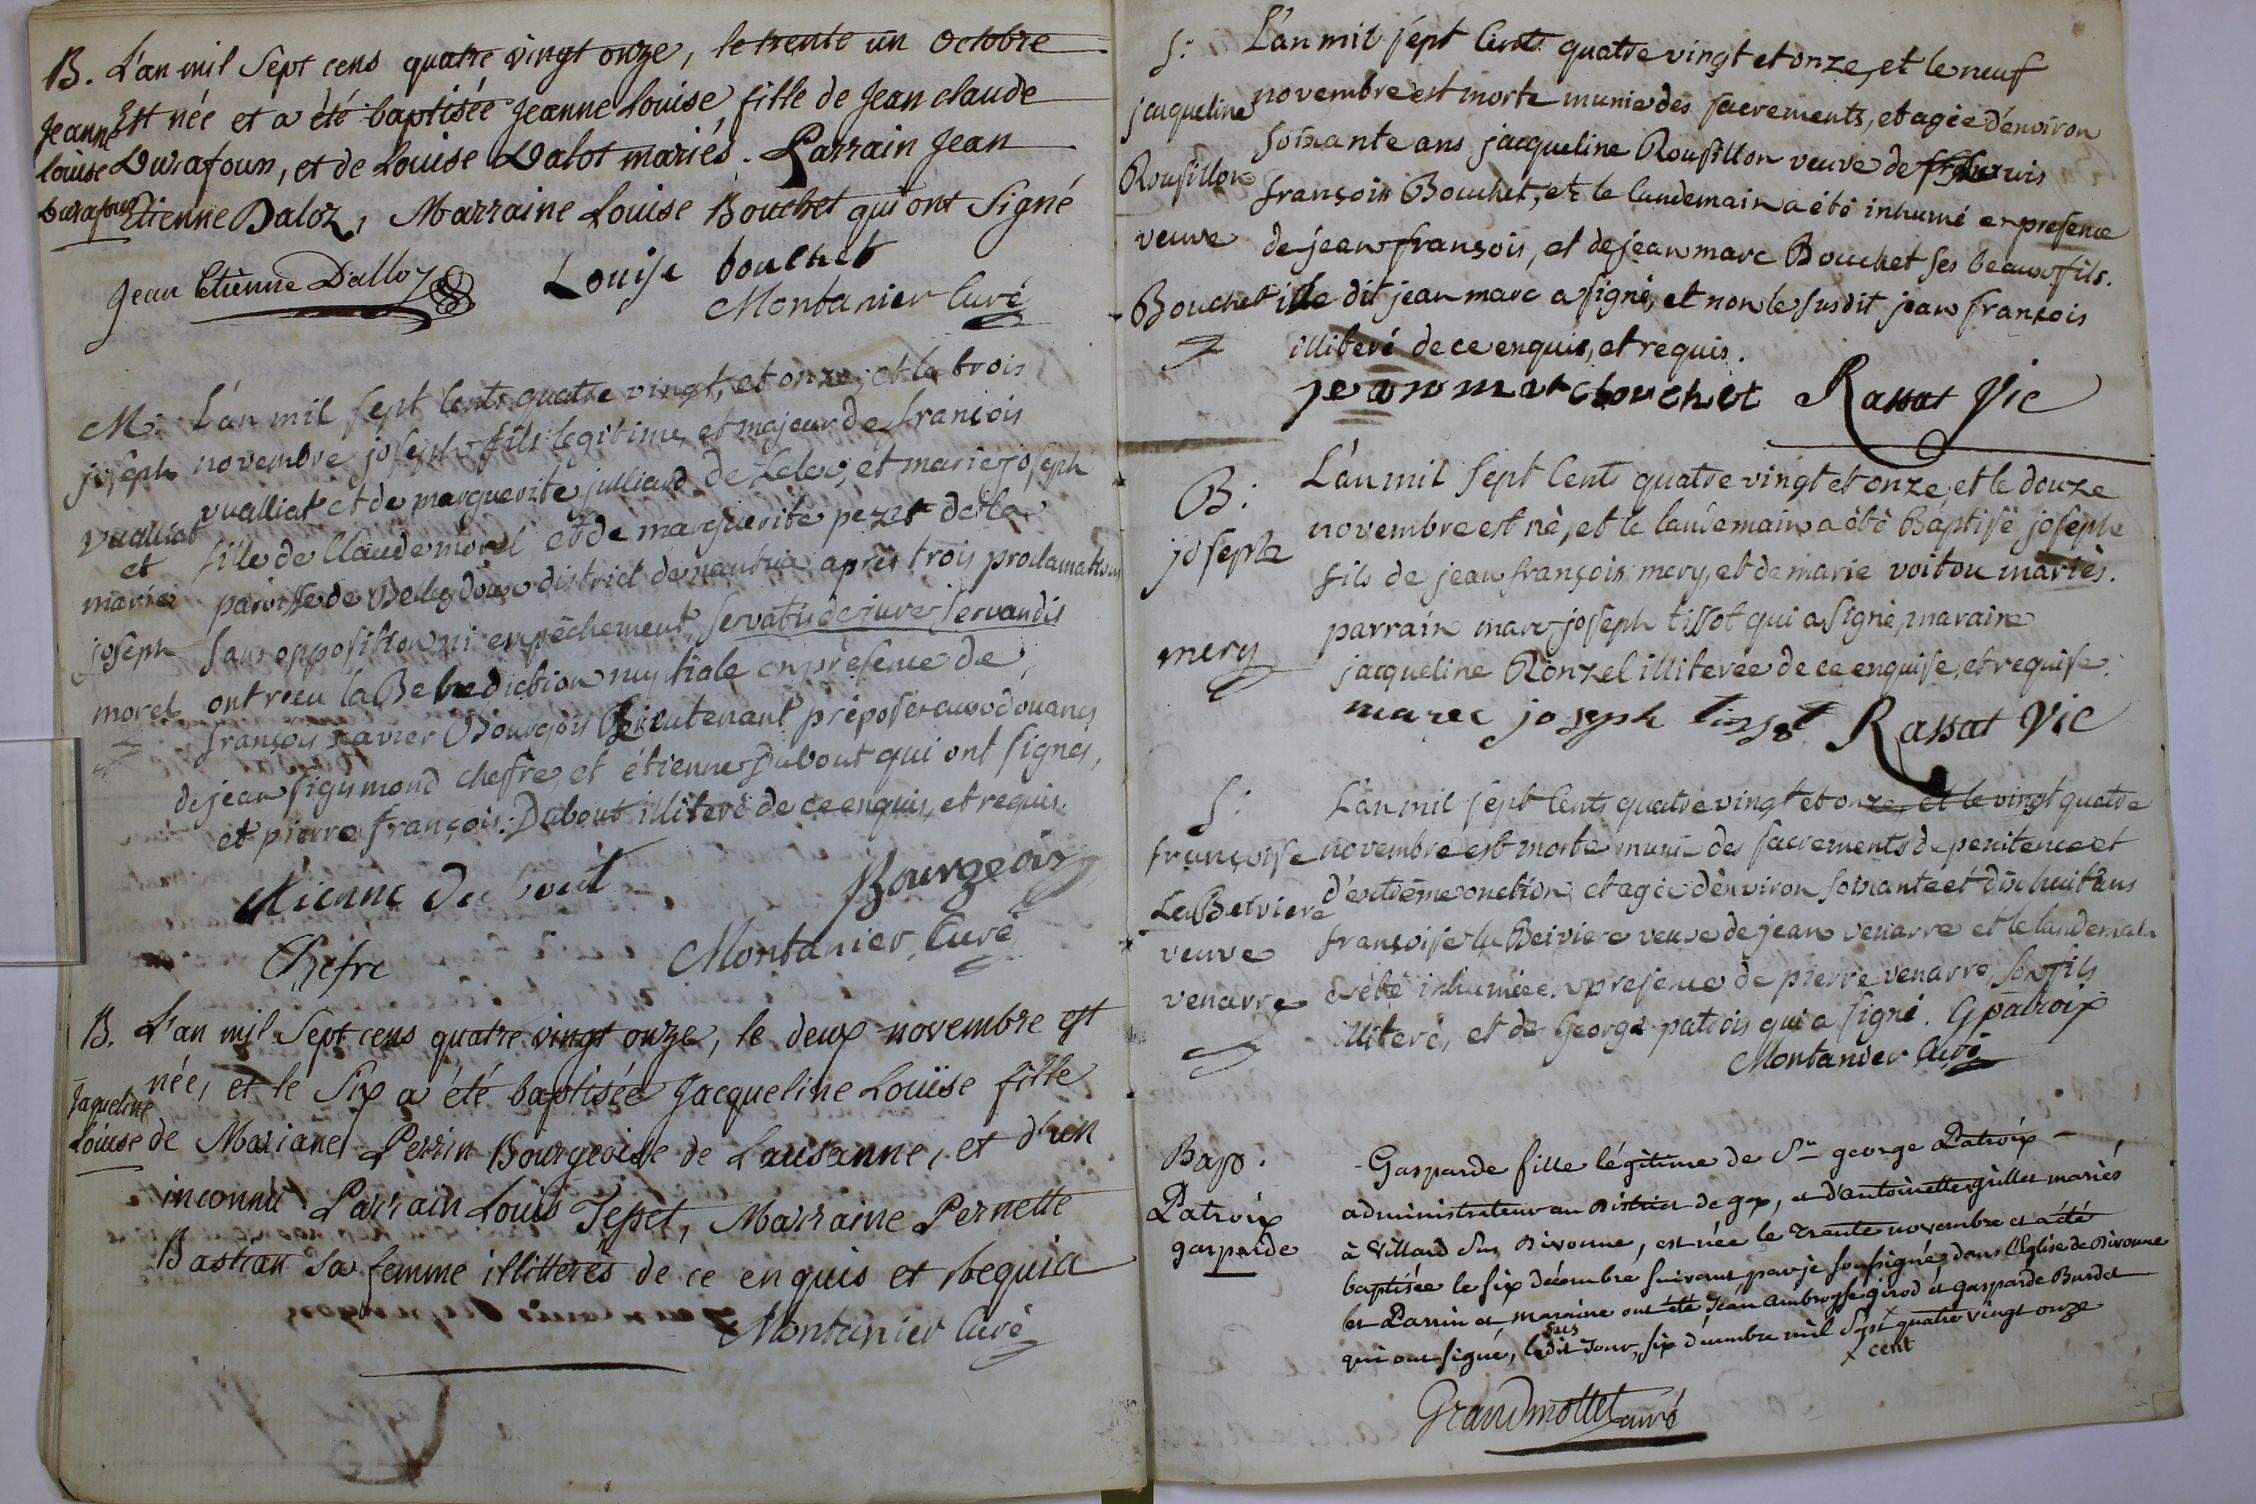 B. L'an mil Sept cens quatre vingt onze, le trente un Octobre
Jeanne Est née et a été baptisée Jeanne Louise, fille de Jean claude
Louise Durafour, et de Louise Dalot mariés. Parrain Jean
Durafour Etienne Daloz, Marraine Louise Bouchet qui ont Signé
Jean Etienne Dalloz Louise bouchet
Montanier Curé
M: L'an mil sept Cents quatre vingt, et onze, et le trois
joseph novembre joseph fils legitime, et majeur de francois
vualliat vualliat et de marguerite julliard de Lelex, et marie joseph
et fille de Claude morel, et de marguerite pezet de la
marie paroisse de Bellydoux district de nantua apres trois proclamations
joseph sans opposition ni empêchement, servatis de jure servandis
morel ont reçu la Benediction nuptiale en présence de
françois xavier Bourgeois Lieutenant préposé aux douanes
de jean sigismond cheffre, et étienne Dubout qui ont signés,
et pierre françois Dubout illiteré de ce enquis, et requis.
Etienne Du bout Bourgeois
Chefre Montanier Curé
B. L'an mil Sept cens quatre vingt onze, le deux novembre est
née, et le Six a été baptisée Jacqueline Louïse fille
Jaqueline
Louise de Mariane Perrin Bourgeoise de Lausanne, et d'un
inconnu Parrain Louis Tepet, Marraine Pernette
Bastian Sa femme illitterés de ce enquis et Requis
Montanier Curé
S: L'an mil sépt Cents quatre vingt et onze, et le neuf
jacqueline novembre est morte munie des sacrements, et agée d'environ
Rousillon soixante ans jacqueline Rousillon veuve de
françois Bouchet, et le landemain a été inhumé en presence
veuve de jean françois, et de jean marc Bouchet ses beaux fils.
Bouchet le dit jean marc a signé, et non le susdit jean francois
illiteré de ce enquis, et requis.
jean marc bouchet Rassat Vic
B: L'an mil sept Cents quatre vingt et onze, et le douze
novembre est né, et le landemain a été Baptisé joseph
joseph fils de jean françois mery, et de marie voitou mariés.
parrain marc joseph tissot qui a signé, maraine
mery jacqueline Ronzel illiterée de ce enquise, et requise.
marec joseph tissot Rassat Vic
S: L'an mil sept Cents quatre vingt et onze, et le vingt quatre
françoise novembre est morte munie des sacrements de penitence et
d'extrême onction, et agée d'environ soixante et dix huit ans
La Beiviere françoise La Beiviere veuve de jean venarre et le landemain
veuve a été inhumée en presence de pierre venarre, son fils
venarre illiteré, et de George patrois qui a signé. G patroix
Montanier Curé
Bap. Gasparde fille légitime de Sr george Patroix
Patroix administrateur au District de gex, et d'antoinette grillet mariés
gasparde à Villard Sur Divonne, est née le Trente novembre et a été
baptisée le six décembre suivant par je soussigné dans l'Eglise de Divonne
les Parrin et maraine ont été Jean ambroyse girod et gasparde Burdet
qui ont signé, le susdit Jour, six décembre mil Sept × quatre vingt onze
× cent
Grandmottet curé